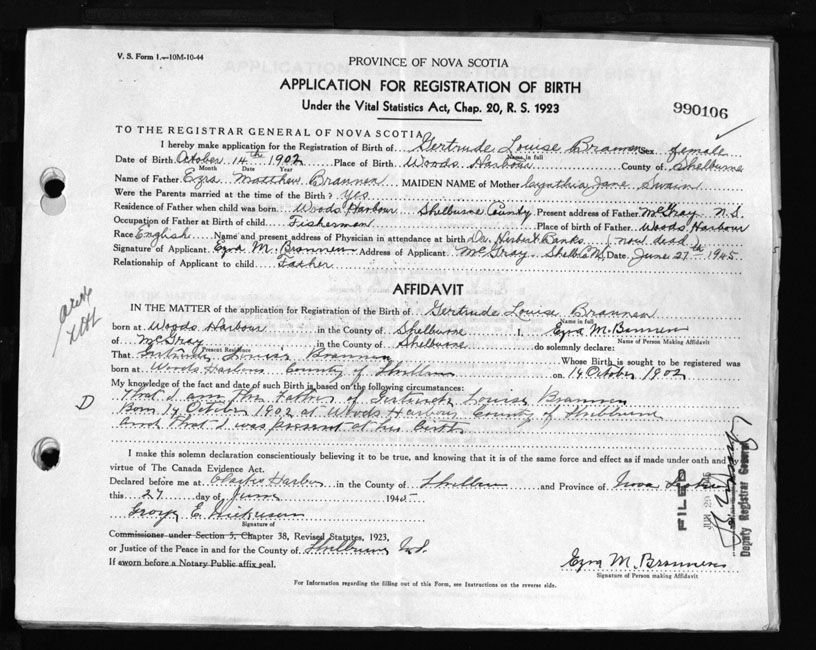 V. S. Form 1.—10M-10-44
PROVINCE OF NOVA SCOTIA
APPLICATION FOR REGISTRATION OF BIRTH
Under the Vital Statistics Act, Chap. 20, R. S. 1923
990106
TO THE REGISTRAR GENERAL OF NOVA SCOTIA
I hereby make application for the Registration of Birth of Gertrude Louise Brannen Sex female
Name in full
Date of Birth October 14th 1902 Place of Birth Woods Harbour County of Shelburne
Month Date Year
Name of Father Ezra Matthew Brannen MAIDEN NAME of Mother Cynthia Jane Swain
Were the Parents married at the time of the Birth? Yes
Residence of Father when child was born Woods Harbour Shelburne County Present address of Father McGray N.S.
Occupation of Father at Birth of child Fisherman Place of birth of Father Woods Harbour
Race English Name and present address of Physician in attendance at birth Dr. Herbert Banks (now dead
Signature of Applicant Ezra M. Brannen Address of Applicant McGray Shelb Co Date June 27th 1945
Relationship of Applicant to child Father
AFFIDAVIT
IN THE MATTER of the application for Registration of the Birth of Gertrude Louise Brannen
Name in full
born at Woods Harbour in the County of Shelburne I, Ezra M. Bannen
Name of Person Making Affidavit
of McGray in the County of Shelburne do solemnly declare:
Present Residence
That Gertrude Louise Brannen Whose Birth is sought to be registered was
born at Woods Harbour County of Shelburne on 14 October 1902
My knowledge of the fact and date of such Birth is based on the following circumstances:
That I am the Father of Gertrude Louise Brannen
D
Born 14 October 1902 at Woods Harbour County of Shelburne
and that I was present at his birth
I make this solemn declaration conscientiously believing it to be true, and knowing that it is of the same force and effect as if made under oath and
virtue of The Canada Evidence Act.
Declared before me at Clarks Harbor in the County of Shelburne and Province of Nova Scotia
this 27 day of June 1945
George E. Nickerson
Signature of
Commissioner under Section 5, Chapter 38, Revised Statutes, 1923,
or Justice of the Peace in and for the County of Shelburne N.S.
If sworn before a Notary Public affix seal.
Ezra M. Brannen
Signature of Person making Affidavit
For Information regarding the filling out of this Form, see Instructions on the reverse side.
FILED
Deputy Registrar General